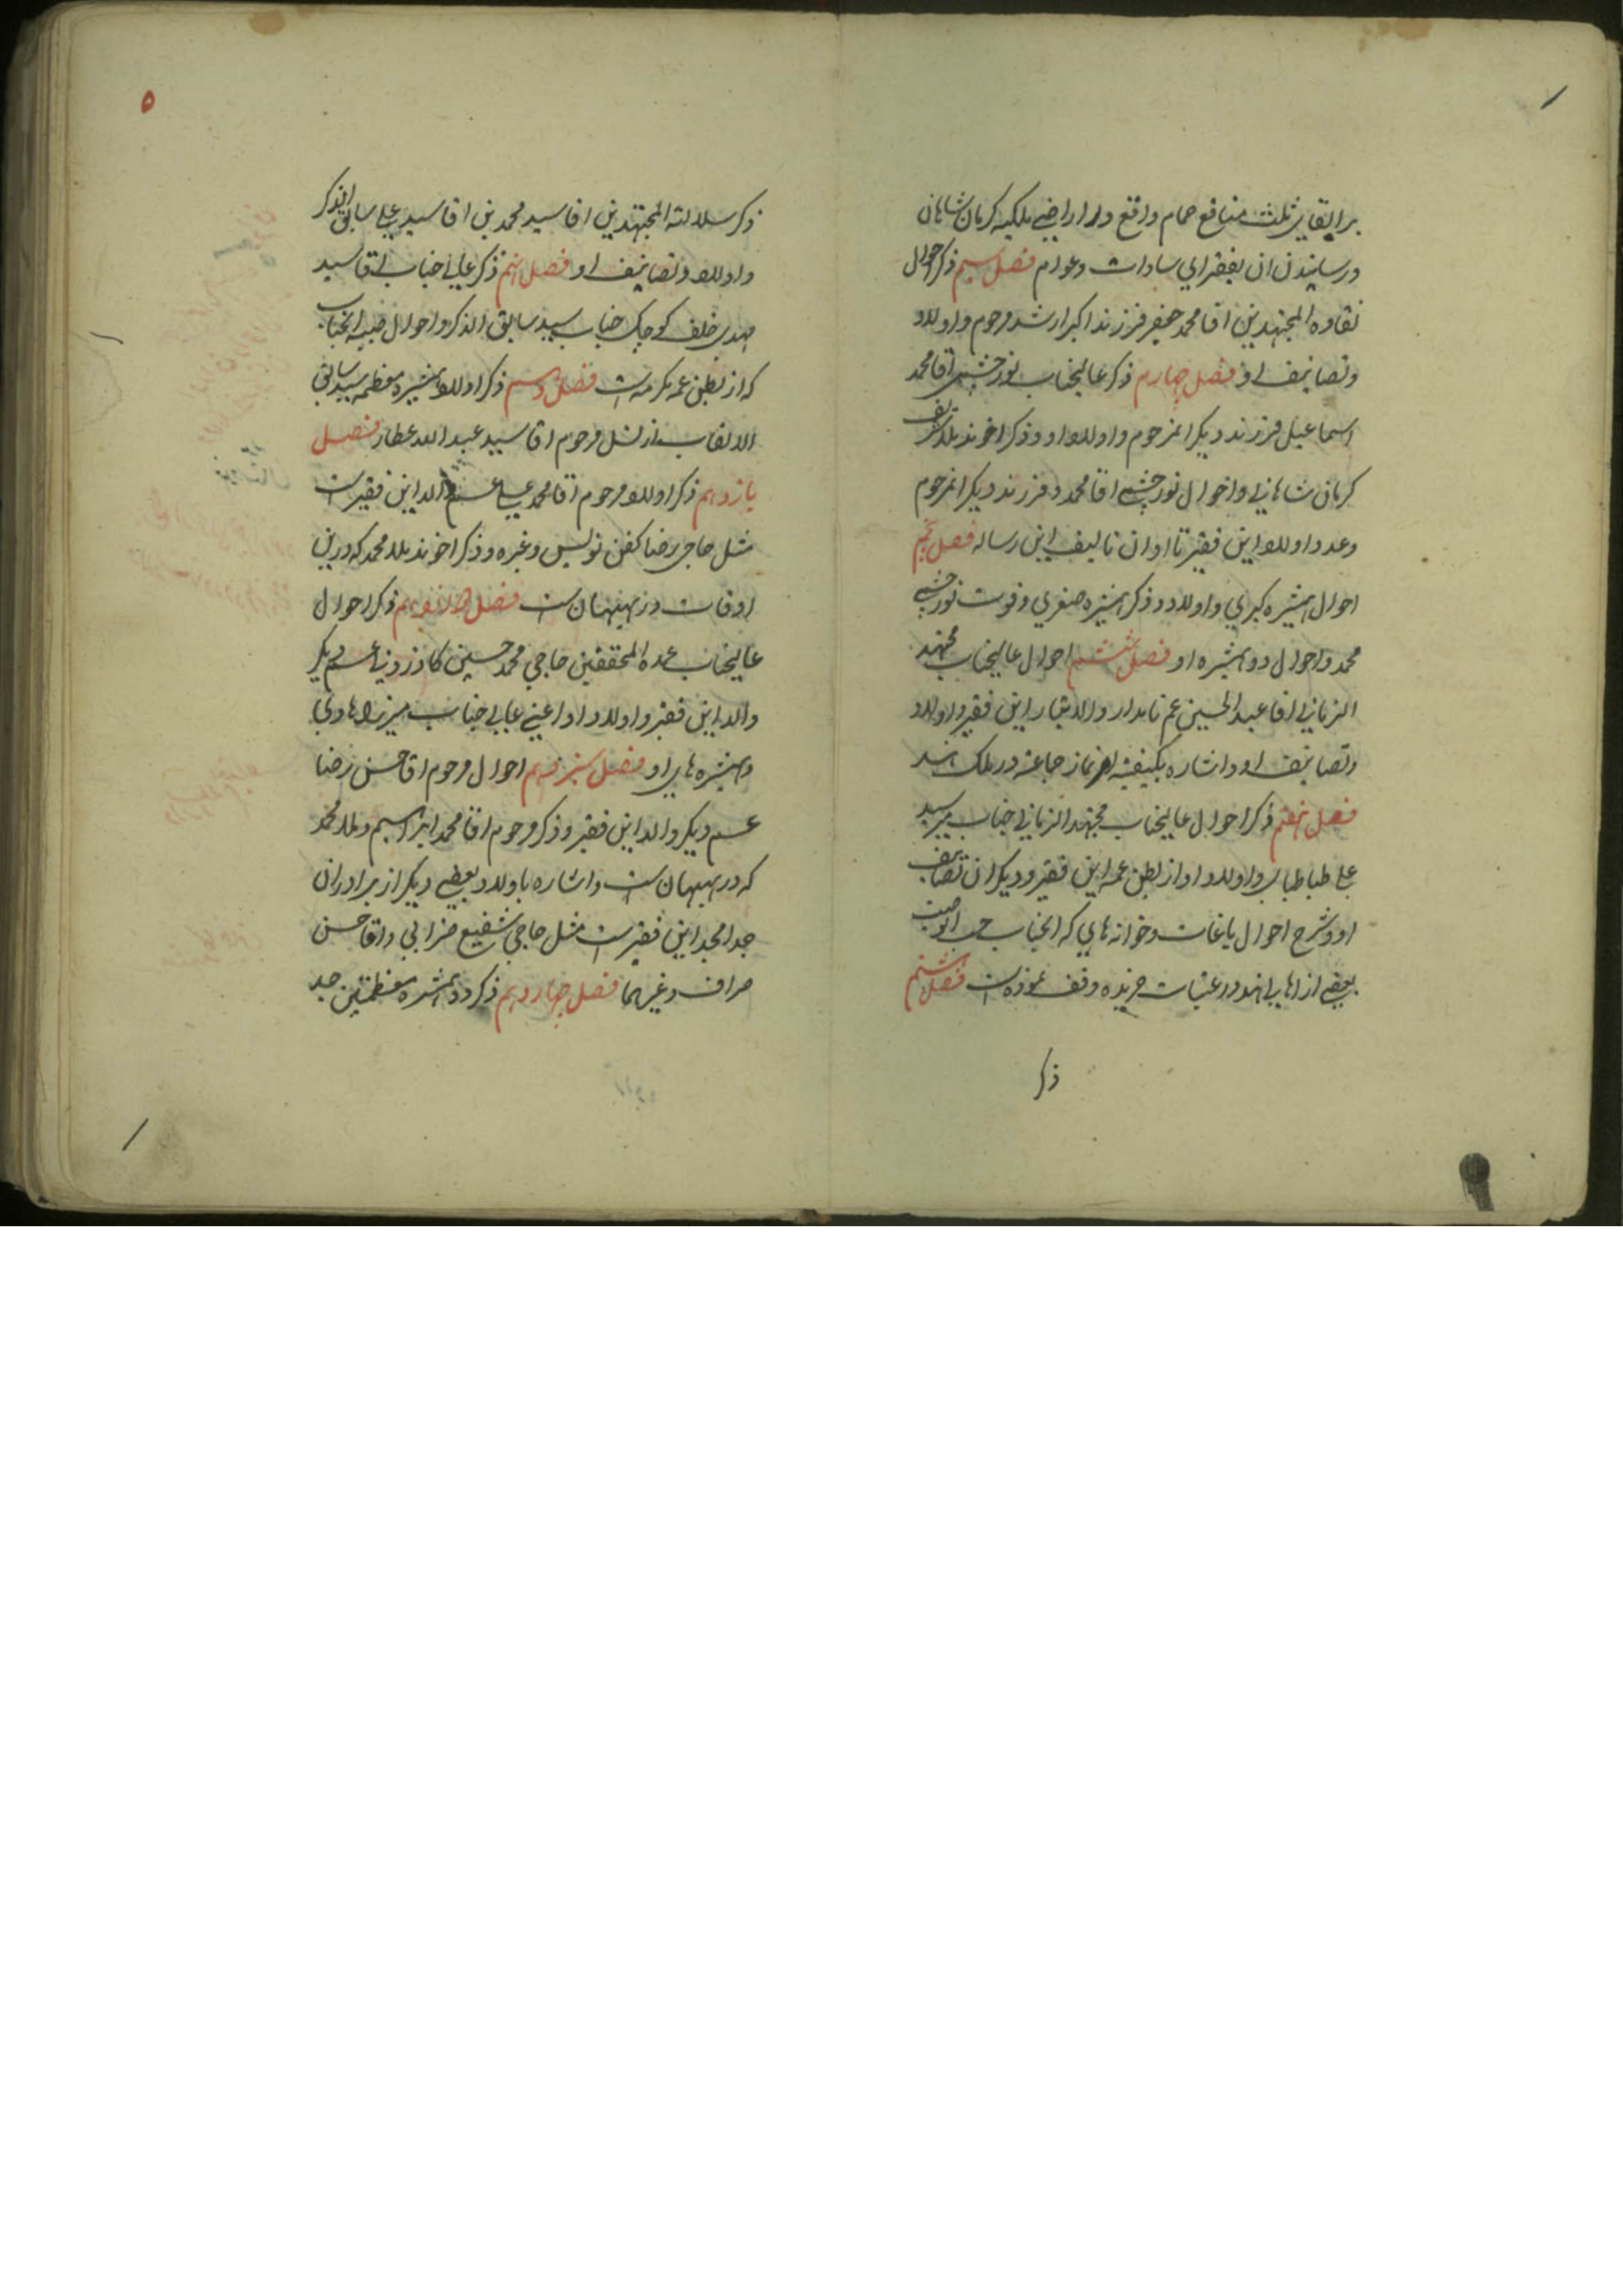 برابقای ثلث منافع حمام واقع در اراضی ملکیه کرمان شاهان
ورسانیدن ان بفقرای سادات وعوام فصل سیم ذکر احوال
نقاوه المجتهدین اقا محمد جعفر فرزند اکبر ارشد مرحوم واولاد
وتصانیف او فصل چهارم ذکر عالیجناب نورچشمی اقا محمد
اسماعیل فرزند دیکر انمرحوم واولاد او وذکر اخوند ملا شریف
کرمان شاهانی واحوال نورچشمی اقا محمود فرزند دیکر انمرحوم
وعدد اولاد این فقیر تا اوان تالیف این رساله فصل پنجم
احوال همشیره کبری واولاد و ذکر همشیره صغری وفوت نورچشمی
محمد واحوال دو همشیره او فصل ششم احوال عالیجناب مجتهد
الزمانی اقا عبد الحسین عم نامدار والاتبار این فقیر واولاد
وتصانیف او واشاره بکیفیت نماز جماعة در ملک هند
فصل هفتم ذکر احوال عالیجناب مجتهد الزمانی جناب میر سید
علی طباطبای واولاد او از بطن عمه این فقیر ودیکران تصانیف
او وشرح احوال باغات وخوانه های که انجناب حسب الوصیت
بعضی از اهالی هند در عتبات خریده وقف نموده است فصل هشتم
ذکر
۵
ذکر سلالته المجتهدین اقا سید محمد بن اقا سید علی سابق الذکر
واولاد وتصانیف او فصل نهم ذکر عالی جناب اقا سید
مهدی خلف کوچک جناب سید سابق الذکر واحوال صبیه انجناب
که از بطن عمه مکرمه است فصل دهم ذکر اولاد همشیره معظمه سید سابق
الالقاب از نسل مرحوم اقا سید عبد الله عطار فصل
یازدهم ذکر اولاد مرحوم اقا محمد علی عم والد این فقیر است
مثل حاجی رضا کفن نویس وغیره وذکر اخوند ملا محمد که درین
اوقات در بهبهان است فصل دوازدهم ذکر احوال
عالیجناب عمده المحققین حاجی محمد حسین کازرونی عم دیکر
والد این فقیر واولاد او اعنی عالی جناب میرزا هادی
وهمشیره های او فصل سیزدهم احوال مرحوم اقا حسن رضا
عم دیکر والد این فقیر وذکر مرحوم اقا محمد ابراهیم وملا محمد
که در بهبهان است واشاره باولاد بعضی دیکر از برادران
جد امجد این فقیر است مثل حاجی شفیع ضرابی واقا حسن
صراف وغیرهما فصل چهاردهم ذکر دو همشیره معظمتین جد